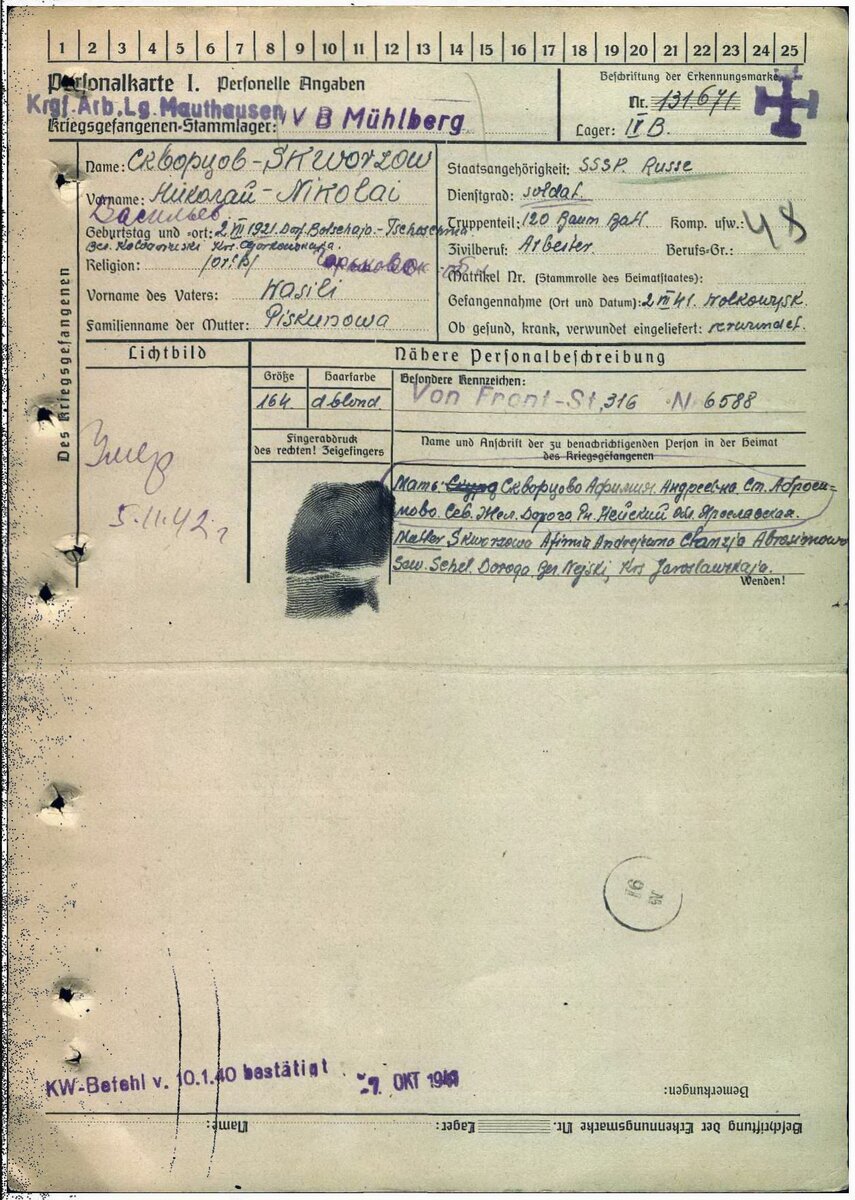 1 2 3 4 5 6 7 8 9 10 11 12 13 14 15 16 17 18 19 20 21 22 23 24 25
Personalkarte I. Personelle Angaben
Beschriftung der Erkennungsmarke
Krgf. Arb. Lg. Mauthausen
Nr. 131671.
Kriegsgefangenen-Stammlager: IV B Mühlberg
Lager: IV B.
Des Kriegsgefangenen
Name: Скворцов - SKWORZOW
Staatsangehörigkeit: SSSR. Russe
Vorname: Николай - Nikolai
Dienstgrad: soldat.
Васильев
Geburtstag und -ort: 1921. Dorf.
Truppenteil: 120 Baum Batl. Komp. usw.: 48
Zivilberuf: Arbeiter. Berufs-Gr.:
Religion: /ort.k/
Matrikel Nr. (Stammrolle des Heimatstaates):
Vorname des Vaters: Wasili
Gefangennahme (Ort und Datum): 41. Wolkowysk.
Familienname der Mutter: Piskunowa
Ob gesund, krank, verwundet eingeliefert: verwundet.
Lichtbild
Nähere Personalbeschreibung
Größe Haarfarbe Besondere Kennzeichen:
164 d blond. Von Front-St. 316 N 6588
Fingerabdruck
des rechten! Zeigefingers
Name und Anschrift der zu benachrichtigenden Person in der Heimat
des Kriegsgefangenen
Умер
5.11.42 г
Мать Скворцово Афимия Андреевна Ст. Аброси-
мово Сев. Жел. Дорога Рн. Нейский Обл Ярославская.
Mutter Skworzowa Afimia Andrejewna Stanzja Abrosimowo
Sew. Schel. Doroga Nejski, Krs Jaroslawskaja.
Wenden!
KW-Befehl v. 10.1.40 bestätigt
OKT 194
Bemerkungen:
Beschriftung der Erkennungsmarke Nr. Lager: Name: